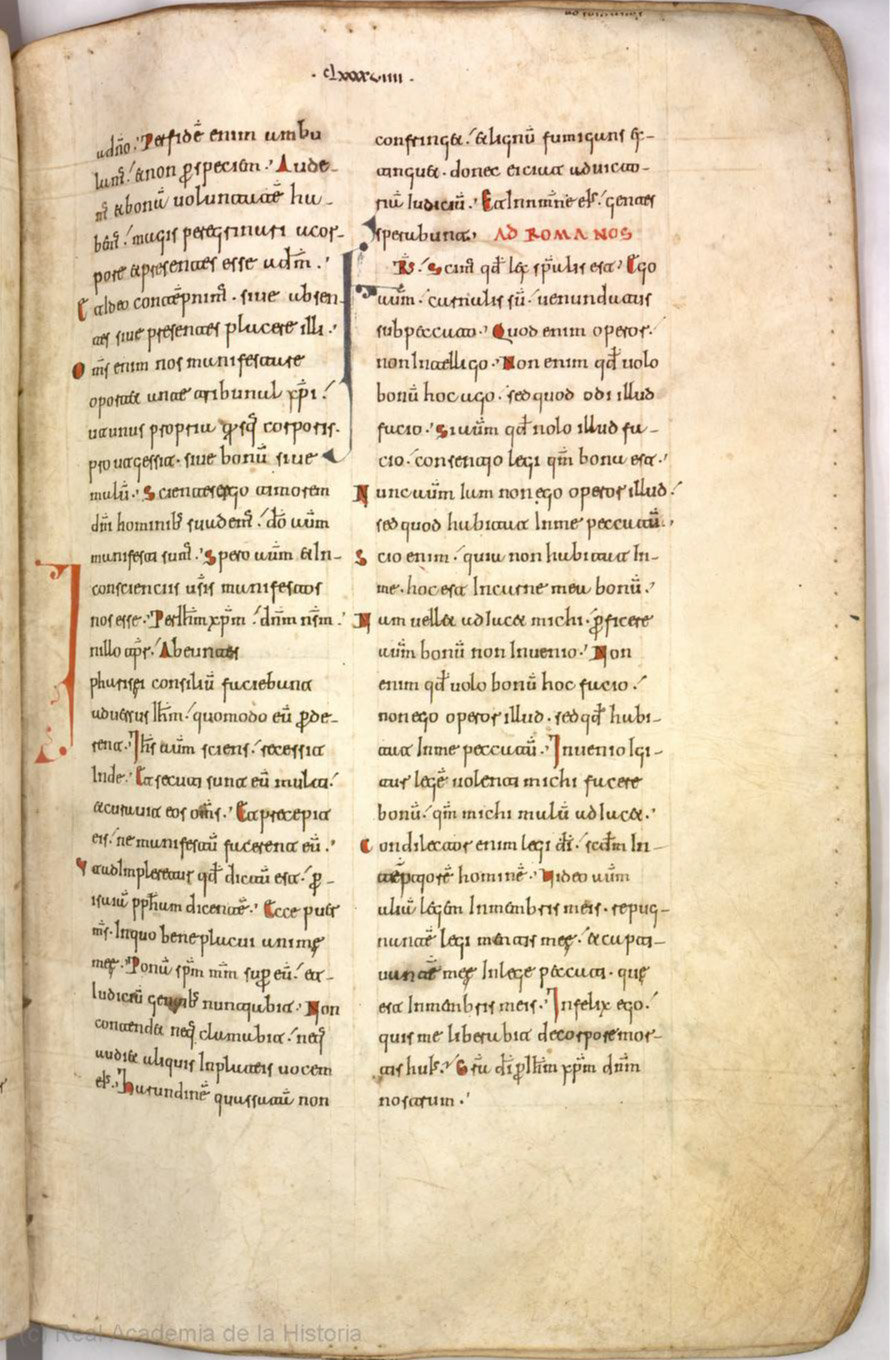 · clxxxviiii ·
a dño · Per fidē enim ambu
lam̄ · & non ꝑ speciem · Aude-
m̄ & bonū voluntatē hu-
bem̄ · magis peregrinari a cor-
pore & presentes esse ad dm̄ ·
Et ideo contēpnim̄ · sive absen-
tes sive presentes placere illi ·
Om̄s enim nos manifestare
oportet ante tribunal xp̄i ·
ut unus propria ꝓ sq̄ corporis ·
prout gessit · sive bonū sive
malū · Scientes ergo timorem
dm̄ hominib; suadem̄ · dō autm̄
manifesti sum̄ · Spero autm̄ & in
conscienciis vs̄is manifestos
nos esse · Per ihm̄ xp̄m · dn̄m ns̄m ·
In illo tpr̄ · Abeuntes
pharisęi consiliū faciebant
adversus ihm̄ · quomodo eū ꝑde-
rent · Ihs̄ autm̄ sciens · secessit
inde · Et secuti sunt eū multi ·
& curavit eos om̄s · Et precepit
eis · ne manifestū facerent eū ·
Ut adimpleretur qd̄ dictū est · ꝑ
isaiā pph̄am dicentē · Ecce puer
ms̄ · in quo bene placuit animę
męę · Ponā spm̄ mm̄ supꝑ eū · et
iudiciū gentib; nuntiabit · Non
contendet neq; clamabit · neq;
audiet aliquis in plateis vocem
els̄ · Harundinē quassatā non
confringet · & lignū fumigans ex-
tinguet · donec eiciat ad victo-
riā iudiciū · Et in nm̄ne els̄ · gentes
sperabunt · AD ROMANOS
Frs̄ · Scim̄ qd̄ lex spr̄ialis est · Ego
autm̄ · carnalis sū · venundatus
sub peccato · Quod enim operor ·
non intelligo · Non enim qd̄ volo
bonū hoc ago · sed quod odi illud
facio · Si autm̄ qd̄ nolo illud fa-
cio · consentio legi qm̄ bona est ·
Nunc autm̄ iam non ego operor illud ·
sed quod habitat in me peccatū ·
Scio enim · quia non habitat in
me · hoc est in carne mea bonū ·
Nam velle adiacet michi · ꝑficere
autm̄ bonū non invenio · Non
enim qd̄ volo bonū hoc facio ·
non ego operor illud · sed qd̄ habi-
tat in me peccatū · Invenio igi-
tur legē volenti michi facere
bonū · qm̄ michi malū adiacet ·
Condilector enim legi dī · scdm̄ in-
teriorē hominē · Video autm̄
aliā legem in menbris meis · repug-
nantē legi mentis męę · & capti-
vantē męę in lege peccati · quę
est in menbris meis · Infelix ego ·
quis me liberabit de corpore mor-
tis huis̄ · Grā dī ꝑ ihm̄ xp̄m dn̄m
nostrum ·
(c) Real Academia de la Historia